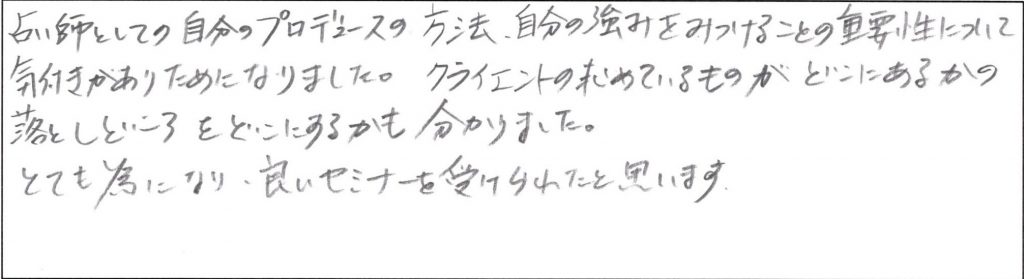 占い師としての自分のプロデュースの方法、自分の強みをみつけることの重要性について
気付きがありためになりました。 クライエントの求めているものがどこにあるかの
落としどころをどこにするかも分かりました。
とても為になり、良いセミナーを受けられたと思います.